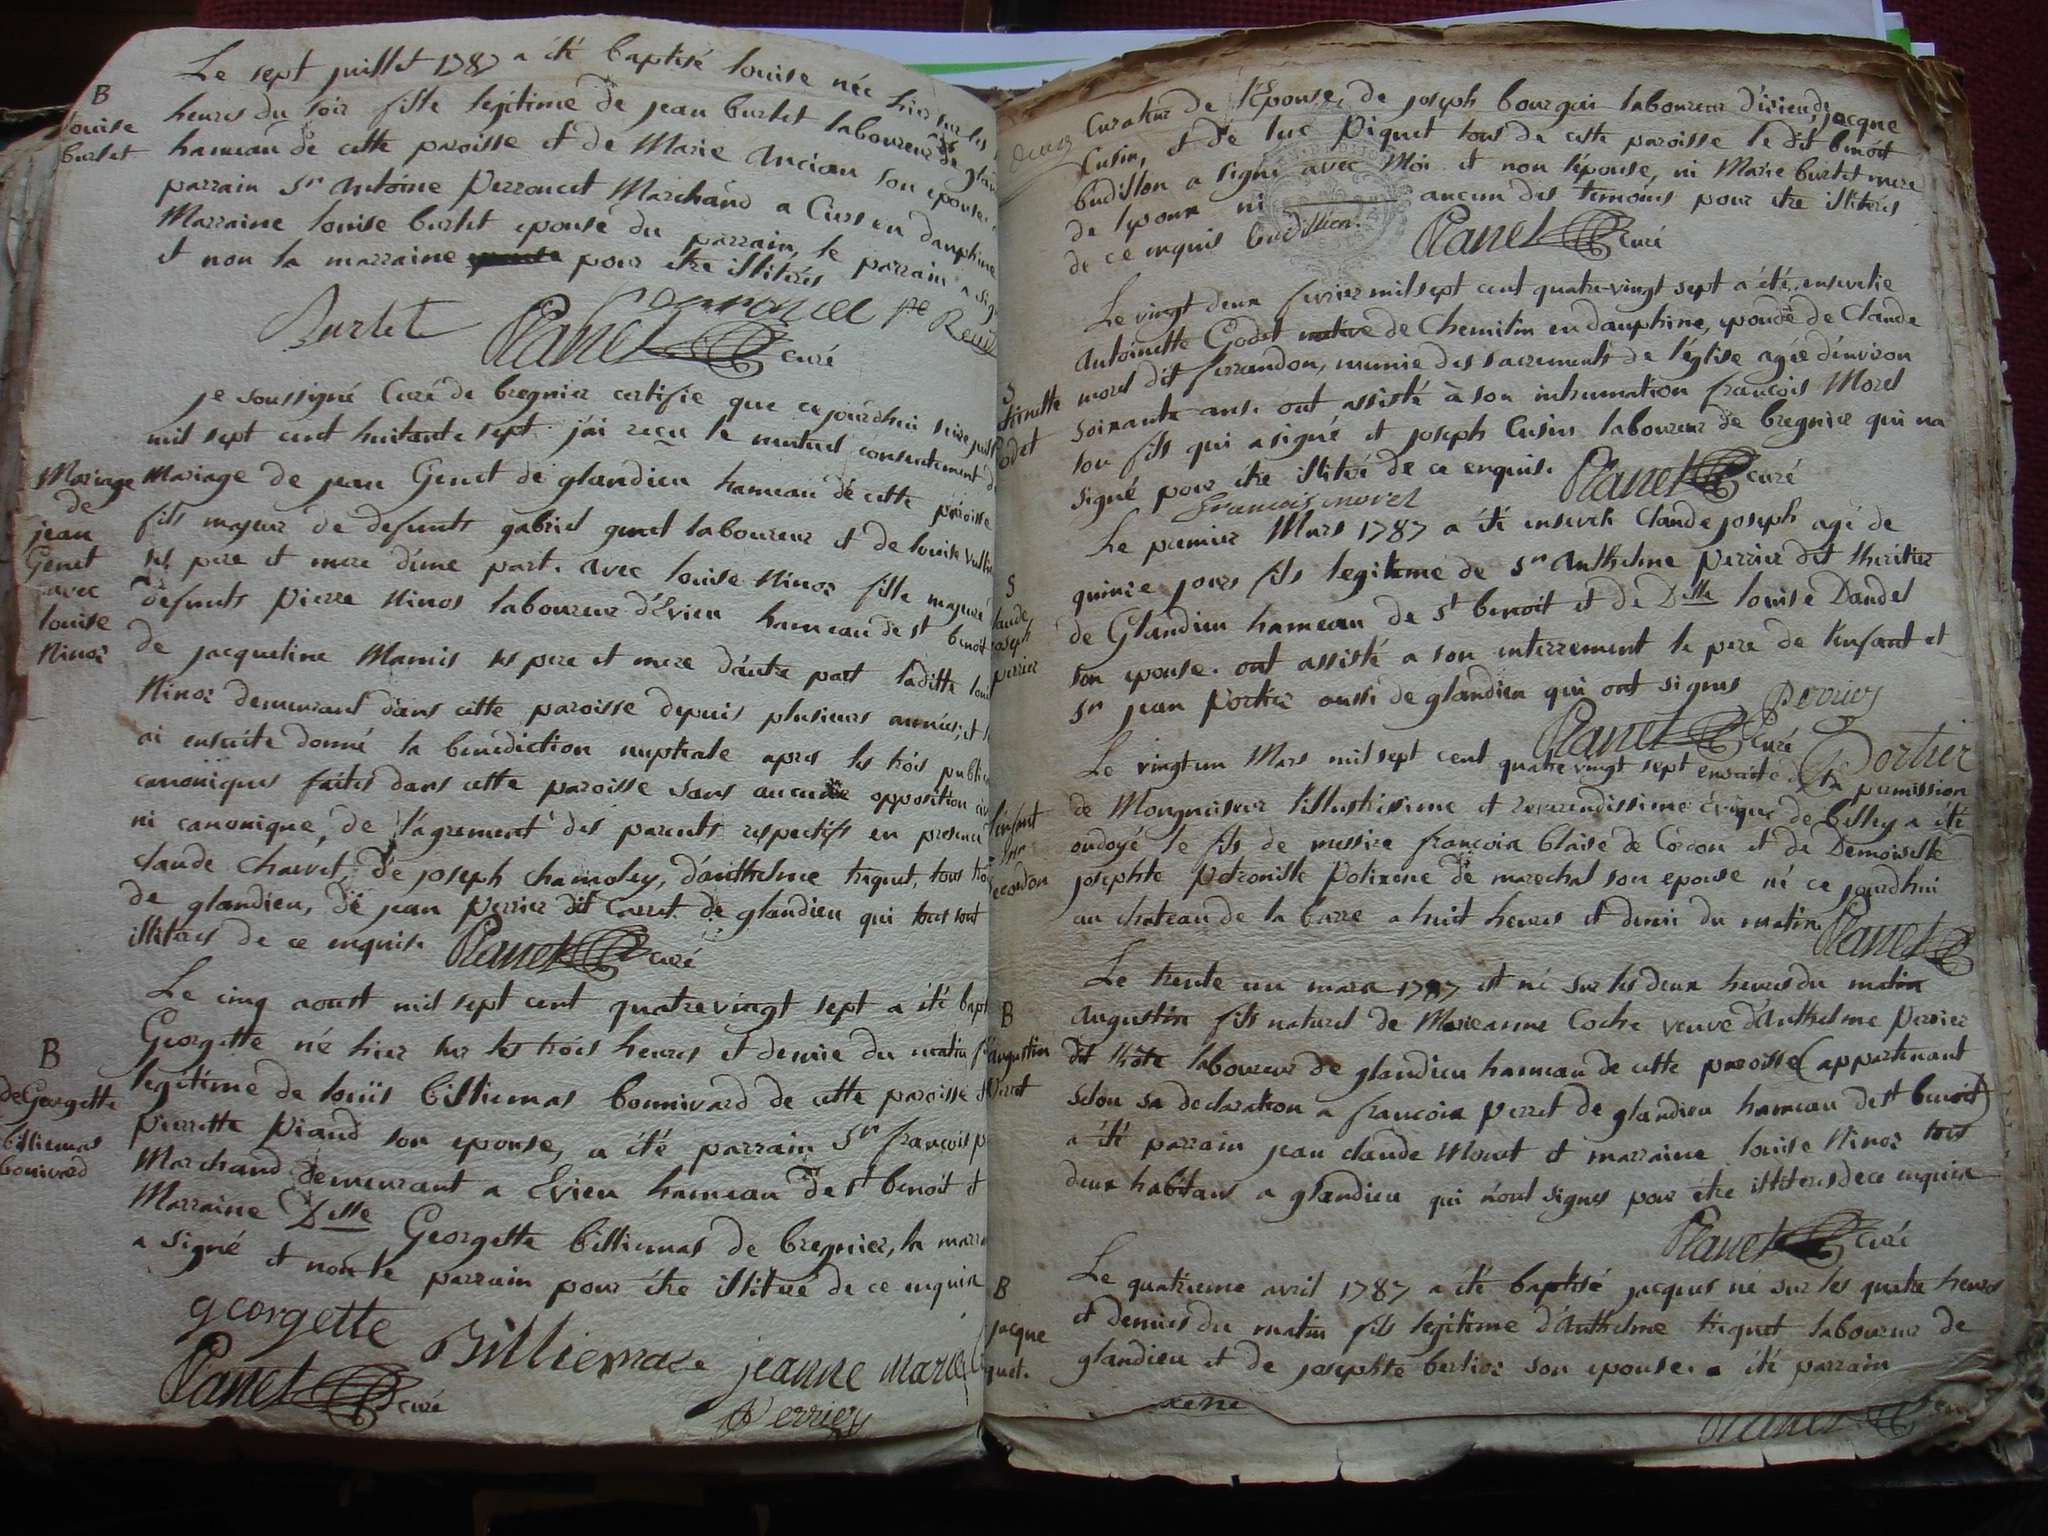 Le sept juillet 1787 a été baptisé louise née hier sur les
B
louise
burlet
heures du soir fille legitime de jean burlet laboureur de
hameau de cette paroisse et de Marie Ancian son epouse.
parrain Sr Antoine Perroncet Marchand a Ciers en dauphiné
Marraine louise burlet epouse du parrain, le parrain a signé
et non la marraine pour etre illiterés
Burlet
Planet curé
je soussigné Curé de bregnier certifie que cejourdhui seize juill
mil sept cent huitante sept j'ai reçu le mutuel consentement de
Mariage
de
jean
Genet
avec
louise
Ninoz
Mariage de jean Genet de glandieu hameau de cette paroisse
fils majeur de defunts gabriel genet laboureur et de louise
ses pere et mere d'une part. avec louise Ninoz fille majeure
defunts pierre Ninos laboureur d'Evieu hameau de st benoit
de jacqueline Mamis ses pere et mere d'autre part laditte loui
Ninoz demeurant dans cette paroisse depuis plusieurs années; et
ai ensuite donné la benediction nuptiale apres les trois public
canoniques faites dans cette paroisse sans aucune opposition civ
ni canonique, de l'agrement des parents respectifs en presence
Claude Charvet, de joseph Chamoley, d'anthelme triquet, tous trois
de glandieu, de jean perrier dit Carret de glandieu qui tous sont
illiterés de ce enquis. Planet curé
Le cinq aoust mil sept cent quatrevingt sept a été bapt
B
de Georgette
billiemas
bonivard
Georgette né hier sur les trois heures et demie du matin fi
legitime de louis billiemas bonnivard de cette paroisse et
pierrette piand son epouse, a été parrain Sr françois p
Marchand demeurant a Evieu hameau de st benoit et
Marraine Dlle Georgette billiemas de bregnier, la marra
a signé et non le parrain pour être illiteré de ce enquis
georgette Billiemaz jeanne marie
Planet curé
Perrier
Curateur de l'Epouse, de joseph bourgai laboureur d'izieu, de jacque
Cusin, et de luc piquet tous de cette paroisse le dit benoit
budillon a signé avec Moi et non l'épouse, ni Marie burlet mere
de lepoux ni aucun des temoins pour etre illiterés
de ce enquis budillon. Planet curé
Le vingt deux fevrier mil sept cent quatre-vingt sept a été ensevelie
Antoinette Godet native de Chemilin en dauphine, epouse de Claude
S
toinette
Godet
morel dit ferrandon, munie des sacrements de l'église agée d'environ
soixante ans. ont assisté à son inhumation françois Morel
son fils qui a signé et joseph Cusin laboureur de bregnier qui na
signé pour être illiteré de ce enquis. Planet curé
francois morel
Le premier Mars 1787 a été enseveli Claude joseph agé de
S
laude
joseph
perrier
quinze jours fils legitime de Sr Anthelme Perrier dit lheritier
de Glandieu hameau de St benoit et de Dlle louise Dandel
son epouse. ont assisté a son enterrement le pere de l'enfant et
Sr jean Portier aussi de glandieu qui ont signés
Perrier
Planet curé Portier
Le vingt un Mars mil sept cent quatre vingt sept ensuite de la permission
l'enfant
decordon
de Monseigneur l'illustrissime et reverendissime évêque de belley a été
ondoyé le fils de messire françois blaise de Cordon et de Demoiselle
josephte petronille polixene de marechal son epouse né ce jourdhui
au chateau de la barre a huit heures et demie du matin. Planet
Le trente un mars 1787 est né sur les deux heures du matin
B
augustin
Perret
augustin fils naturel de Marieanne Coche veuve d'Anthelme perrier
dit lhôte laboureur de glandieu hameau de cette paroisse (appartenant
selon sa declaration a françois perret de glandieu hameau de st benoit)
a été parrain jean claude Morat et marraine louise Ninoz tous
deux habitans a glandieu qui n'ont signés pour être illiterés de ce enquis
Planet curé
Le quatrieme avril 1787 a été baptisé jacques né sur les quatre heures
B
jacque
quet.
et demies du matin fils legitime d'Anthelme triquet laboureur de
glandieu et de josephte berlioz son epouse. a été parrain